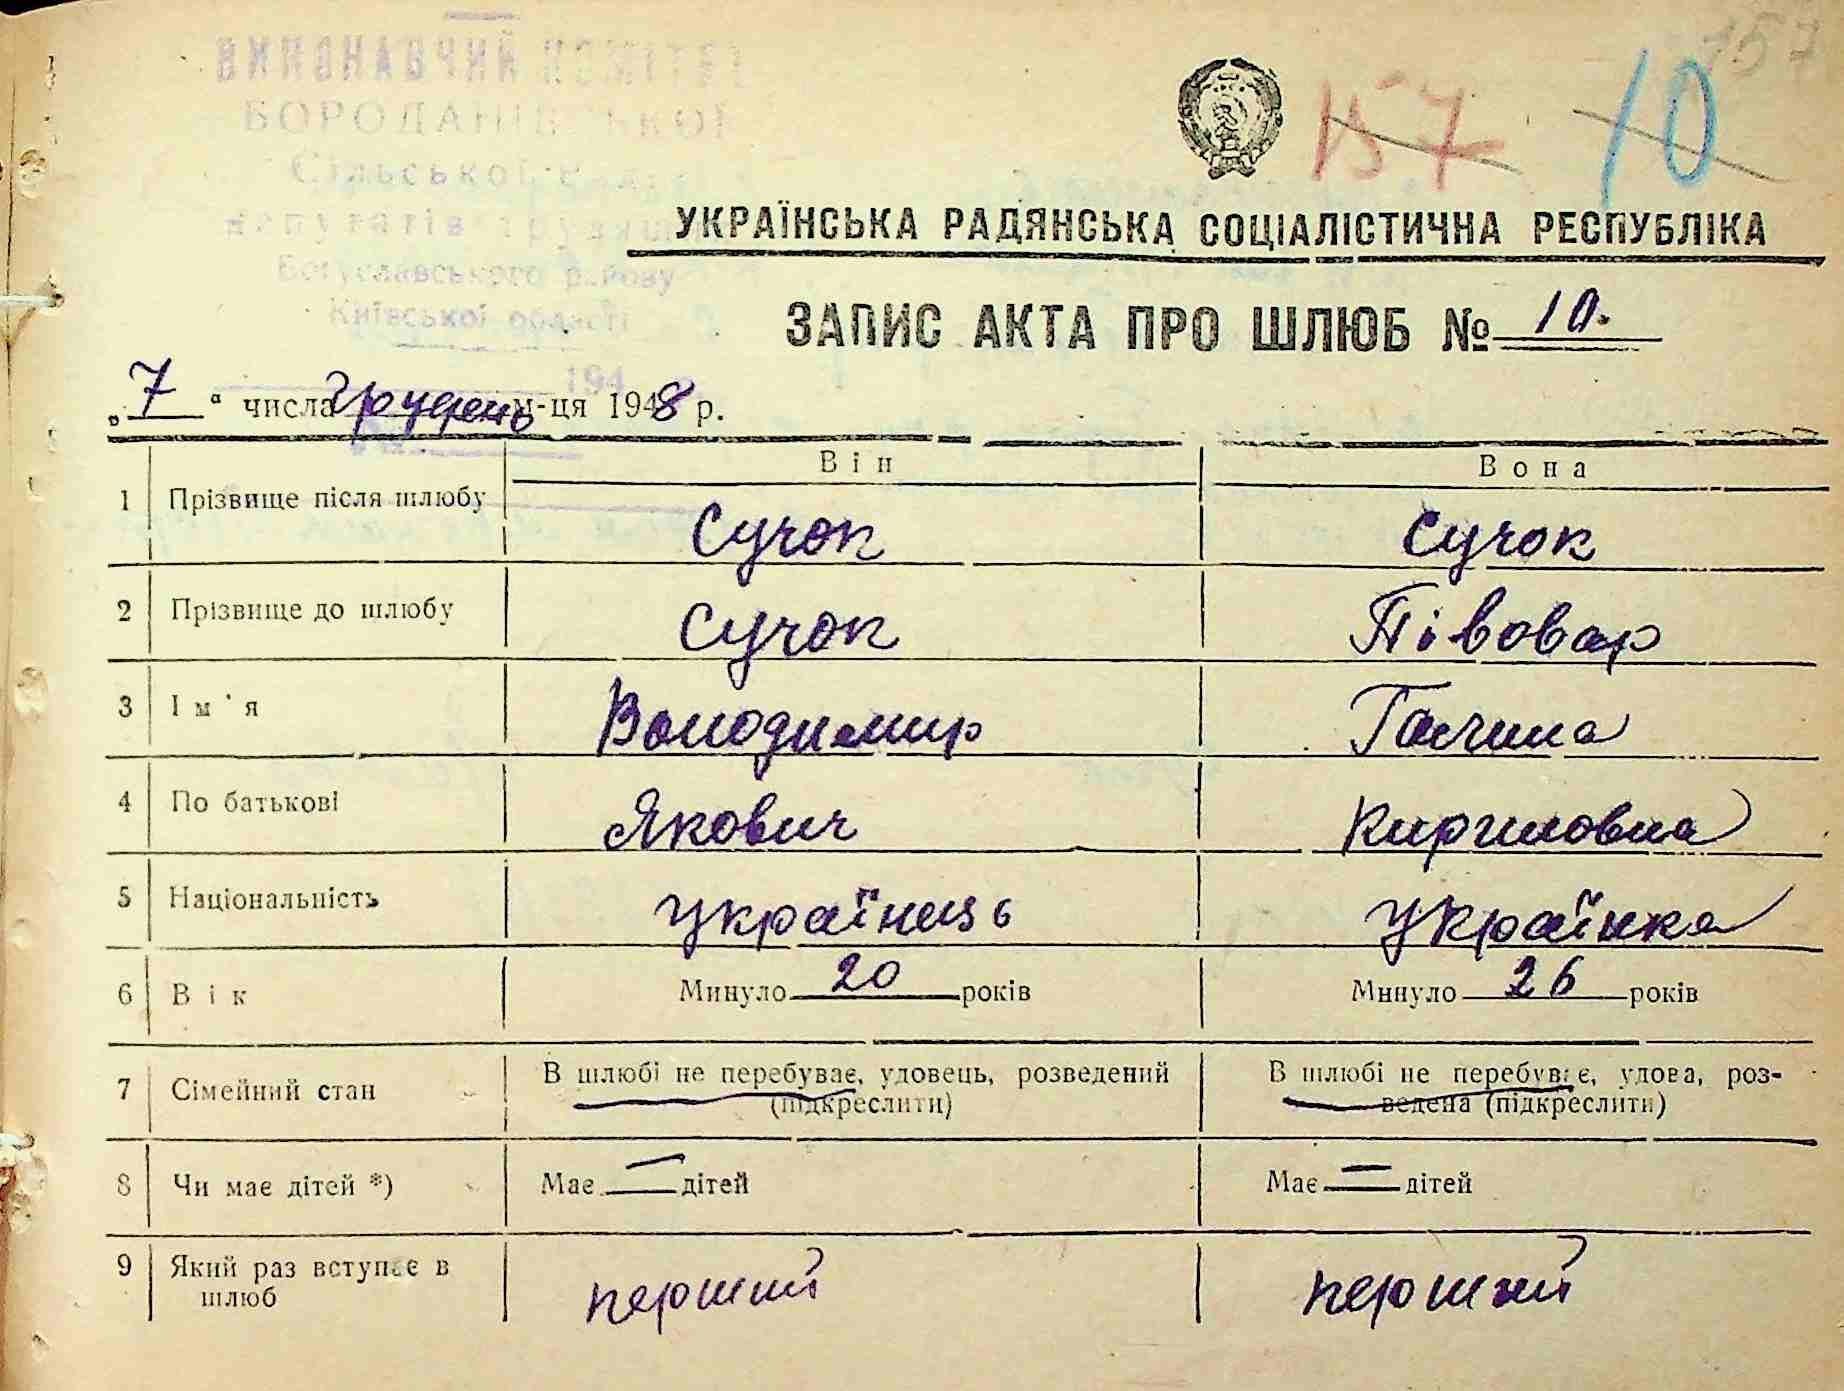 157
ВИКОНАВЧИЙ КОМІТЕТ
БОРОДАНІВСЬКОЇ
Сільської Ради
депутатів трудящих
Богуславського району
Київської області
194
157 10
УКРАЇНСЬКА РАДЯНСЬКА СОЦІАЛІСТИЧНА РЕСПУБЛІКА
ЗАПИС АКТА ПРО ШЛЮБ № 10.
„7“ числа Грудень м-ця 1948 р.
Він Вона
1 Прізвище після шлюбу Сучок Сучок
2 Прізвище до шлюбу Сучок Півовар
3 Ім'я Володимир Галина
4 По батькові Якович Кириловна
5 Національність Українець Українка
6 Вік Минуло 20 років Минуло 26 років
7 Сімейний стан В шлюбі не перебуває, удовець, розведений В шлюбі не перебуває, удова, роз-
(підкреслити) ведена (підкреслити)
8 Чи має дітей *) Має — дітей Має — дітей
9 Який раз вступає в
шлюб перший перший